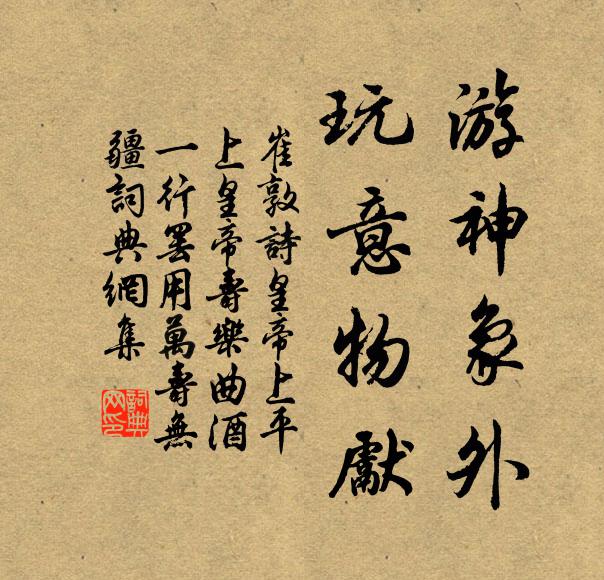 游神象外
玩意物獻
崔敦詩皇帝上平
上皇帝壽樂曲酒
一行罢用萬壽無
疆詞典網集
詞典
网印